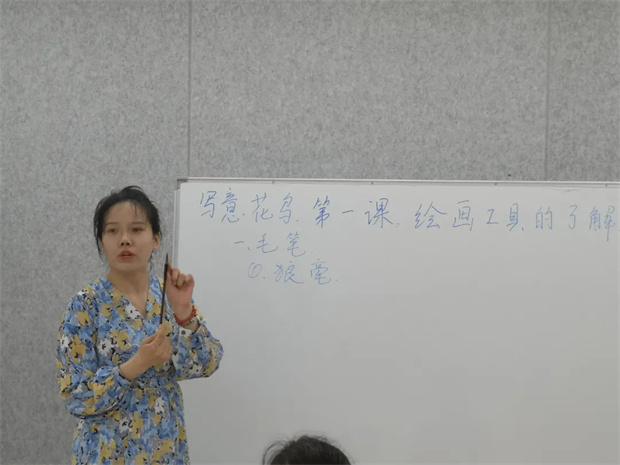 写意花鸟.第一课.绘画工具的了解
一.毛笔
①.狼毫.